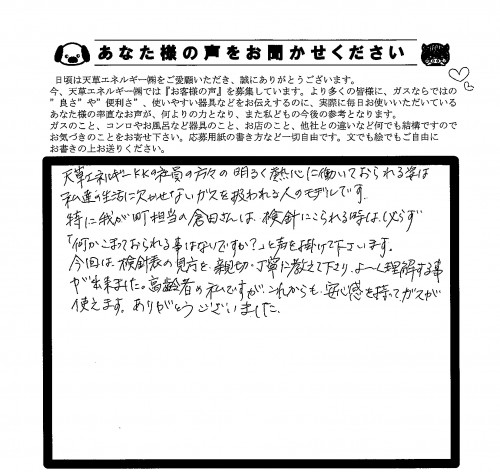 あなた様の声をお聞かせください
日頃は天草エネルギー㈱をご愛願いただき、誠にありがとうございます。
今、天草エネルギー㈱では『お客様の声』を募集しています。より多くの皆様に、ガスならではの
”良さ”や”便利さ”、使いやすい器具などをお伝えするのに、実際に毎日お使いいただいている
あなた様の率直なお声が、何よりの力となり、また私どもの今後の参考となります。
ガスのこと、コンロやお風呂など器具のこと、お店のこと、他社との違いなど何でも結構ですので
お気づきのことをお寄せ下さい。応募用紙の書き方など一切自由です。文でも絵でもご自由に
お書きの上お送りください。
天草エネルギーKKの社員の方々の明るく熱心に働いておられる姿は
私達の生活に欠かせないガスを扱われる人のモデルです。
特に我が町担当の倉田さんは、検針にこられる時は、必らず
「何かこまっておられる事はないですか?」と声を掛けて下さいます。
今回は、検針表の見方を、親切、丁寧に教えて下さり、よーく理解する事
が出来ました。高齢者の私ですが、これからも、安心感を持ってガスが
使えます。ありがとうございました。